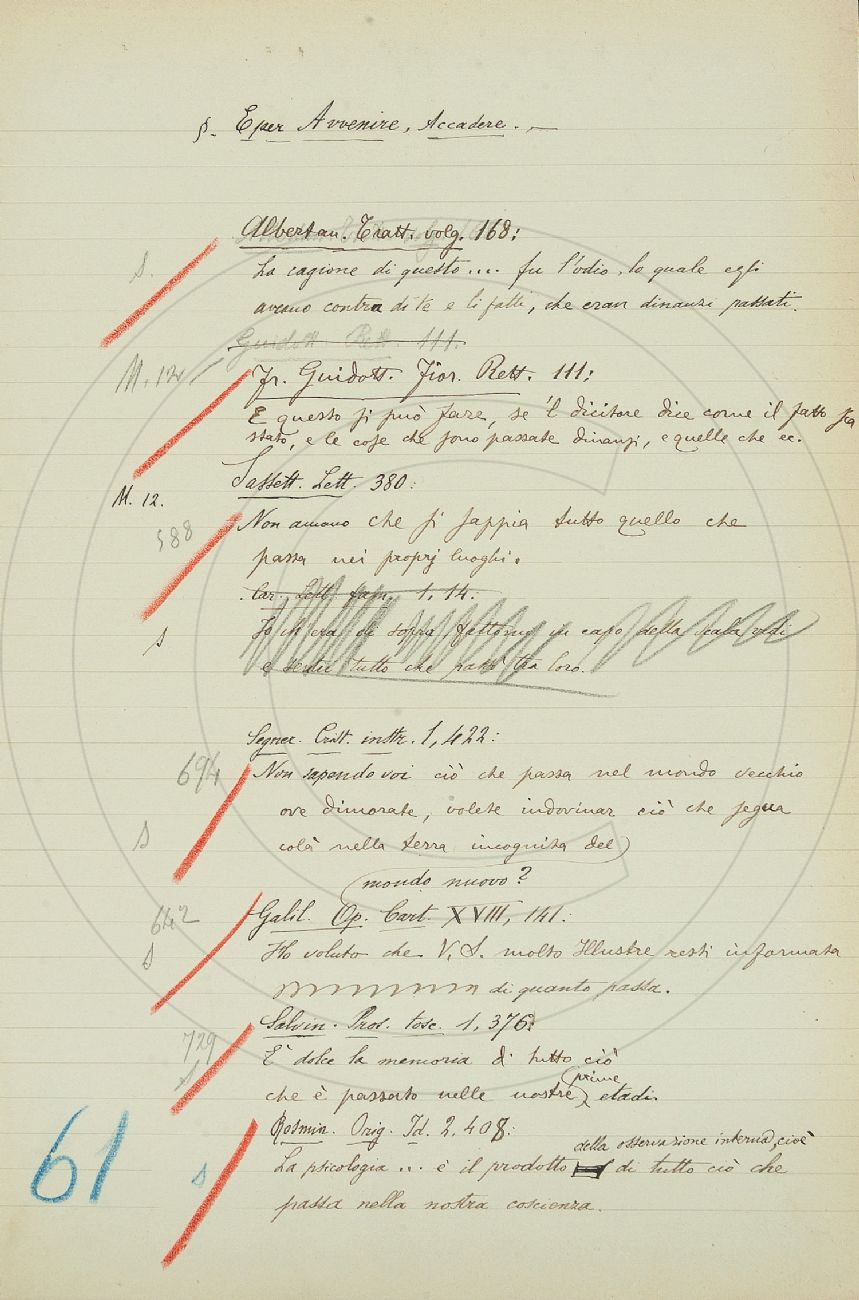 §. E per Avvenire, Accadere. —
Albertan. Tratt. volg. 168:
S.
La cagione di questo.... fu l'odio, lo quale egli
aveano contra di te e li fatti, che eran dinanzi passati.
Guidott. Rett. 111.
M. 12
Fr. Guidott. Fior. Rett. 111:
E questo si può fare, se 'l dicitore dice come il fatto sia
stato, e le cose che sono passate dinanzi, e quelle che ec.
Sassett. Lett. 380:
M. 12.
588
Non amano che si sappia tutto quello che
passa nei proprj luoghi.
Car. Lett. fam. 1, 14:
S
Io ch'era di sopra, fattomi in capo della scala vidi
e sentii tutto che passò tra loro.
Segner. Crist. instr. 1, 422:
694
Non sapendo voi ciò che passa nel mondo vecchio
ove dimorate, volete indovinar ciò che segua
S
colà nella terra incognita del
mondo nuovo?
642
Galil. Op. Cart. XVIII, 141:
S
Ho voluto che V. S. molto Illustre resti informata
di quanto passa.
Salvin. Pros. tosc. 1, 376:
729
È dolce la memoria di tutto ciò
S
che è passato nelle nostre prime etadi.
Rosmin. Orig. Id. 2. 408:
61
S
La psicologia... è il prodotto della osservazione interna, cioè di tutto ciò che
passa nella nostra coscienza.